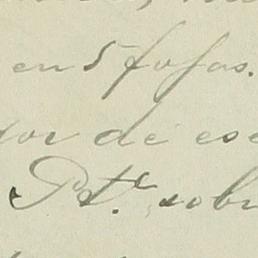 en 5 fojas.
dor de ese
Pte. sobr